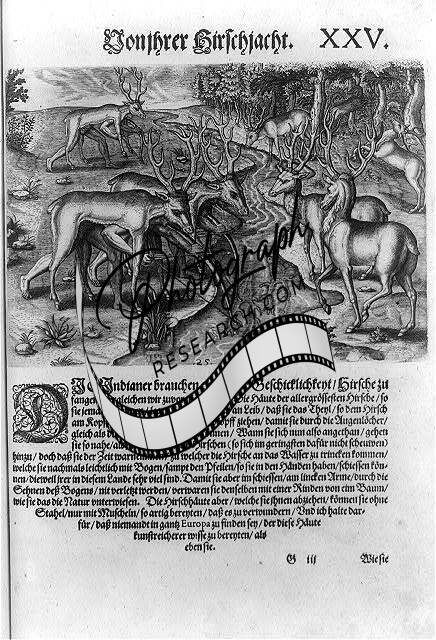 Von jhrer Hirschjacht. XXV.
Photograph
RESEARCH.COM
25.
DIe Indianer brauchen Geschicklichkeyt / Hirsche zu
fangen gleichen wir zuvor Die Häute der allergrössesten Hirsche / so
sie jema am Leib / daß sie das Theyl / so dem Hirsch
am Kopff ziehen / damit sie durch die Augenlöcher /
gleich als d nnen / Wann sie sich nun also angethan / gehen
sie so nahe / als Hirschen ( so sich im geringsten dafür nicht schewen )
hinzu / doch daß sie der Zeit warnemen / zu welcher die Hirsche an das Wasser zu trincken kommen /
welche sie nachmals leichtlich mit Bogen / sampt den Pfeilen / so sie in den Händen haben / schiessen kön-
nen / dieweil jrer in diesem Lande sehr viel sind. Damit sie aber im schiessen / am lincken Arme / durch die
Sehnen deß Bogens / nit verletzt werden / verwaren sie denselben mit einer Rinden von eim Baum /
wie sie das die Natur unterwiesen. Die Hirschhäute aber / welche sie jhnen abziehen / können sie ohne
Stahel / nur mit Muscheln / so artig bereyten / daß es zu verwundern / Und ich halte dar-
für / daß niemandt in gantz Europa zu finden sey / der diese Häute
kunstreicherer wisse zu bereyten / als
eben sie.
G iij Wie sie